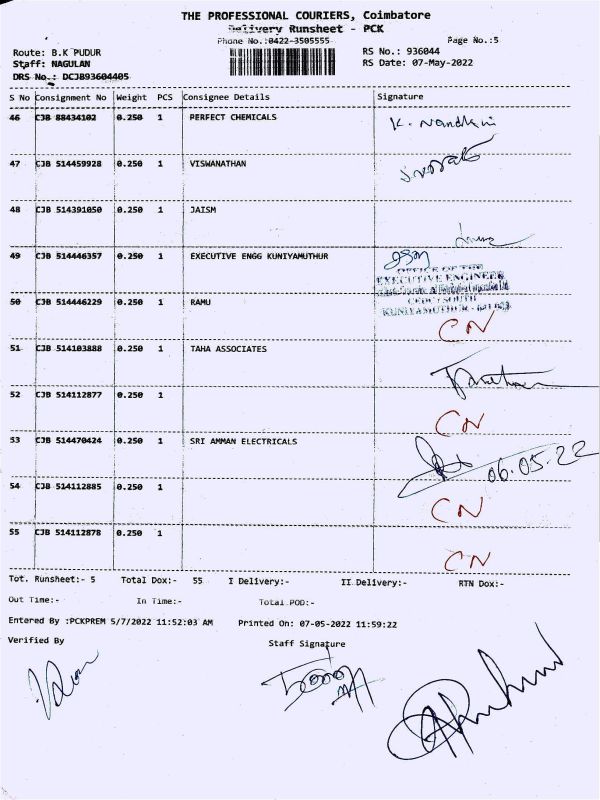 THE PROFESSIONAL COURIERS, Coimbatore
Delivery Runsheet - PCK
Phone No.:0422-3505555 Page No.:5
Route: B.K PUDUR RS No.: 936044
Staff: NAGULAN RS Date: 07-May-2022
DRS No.: DCJB93604405
S No Consignment No Weight PCS Consignee Details Signature
46 CJB 88434102 0.250 1 PERFECT CHEMICALS K. Nandhini
47 CJB 514459928 0.250 1 VISWANATHAN
48 CJB 514391050 0.250 1 JAISM
49 CJB 514446357 0.250 1 EXECUTIVE ENGG KUNIYAMUTHUR
OFFICE OF THE
EXECUTIVE ENGINEER
CEDC / SOUTH
50 CJB 514446229 0.250 1 RAMU CN
51 CJB 514103888 0.250 1 TAHA ASSOCIATES
52 CJB 514112877 0.250 1 CN
53 CJB 514470424 0.250 1 SRI AMMAN ELECTRICALS 06.05.22
54 CJB 514112885 0.250 1 CN
55 CJB 514112878 0.250 1 CN
Tot. Runsheet:- 5 Total Dox:- 55 I Delivery:- II Delivery:- RTN Dox:-
Out Time:- In Time:- Total POD:-
Entered By :PCKPREM 5/7/2022 11:52:03 AM Printed On: 07-05-2022 11:59:22
Verified By Staff Signature